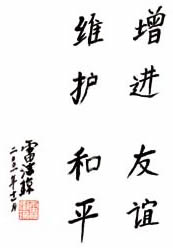 增进友谊
维护和平
雷洁琼
二〇〇一年十一月